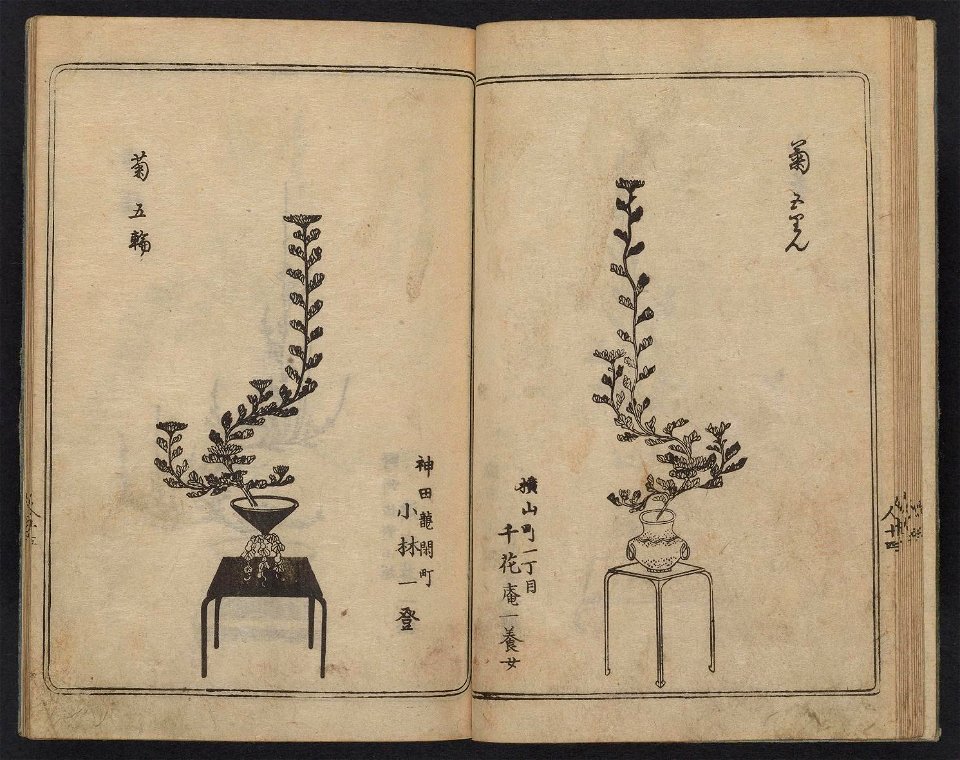 菊 五りん
横山町一丁目
千花庵一養女
神田龍閑町
小林一登
菊 五輪